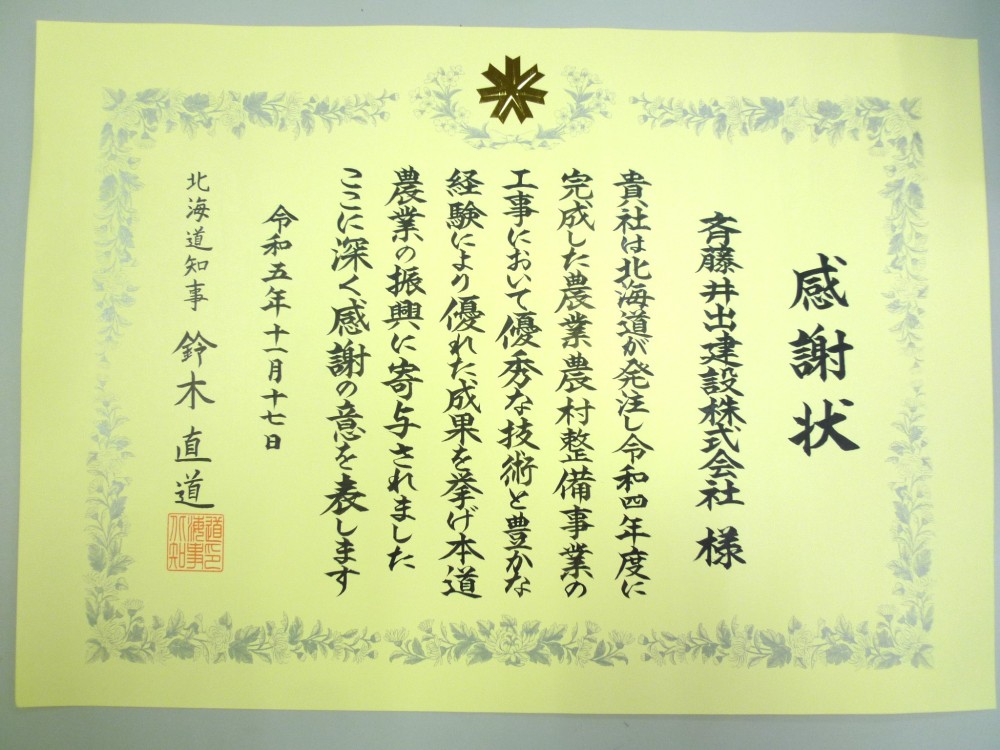 感謝状
斉藤井出建設株式会社 様
貴社は北海道が発注し令和四年度に
完成した農業農村整備事業の
工事において優秀な技術と豊かな
経験により優れた成果を挙げ本道
農業の振興に寄与されました
ここに深く感謝の意を表します
令和五年十一月十七日
北海道知事 鈴木直道